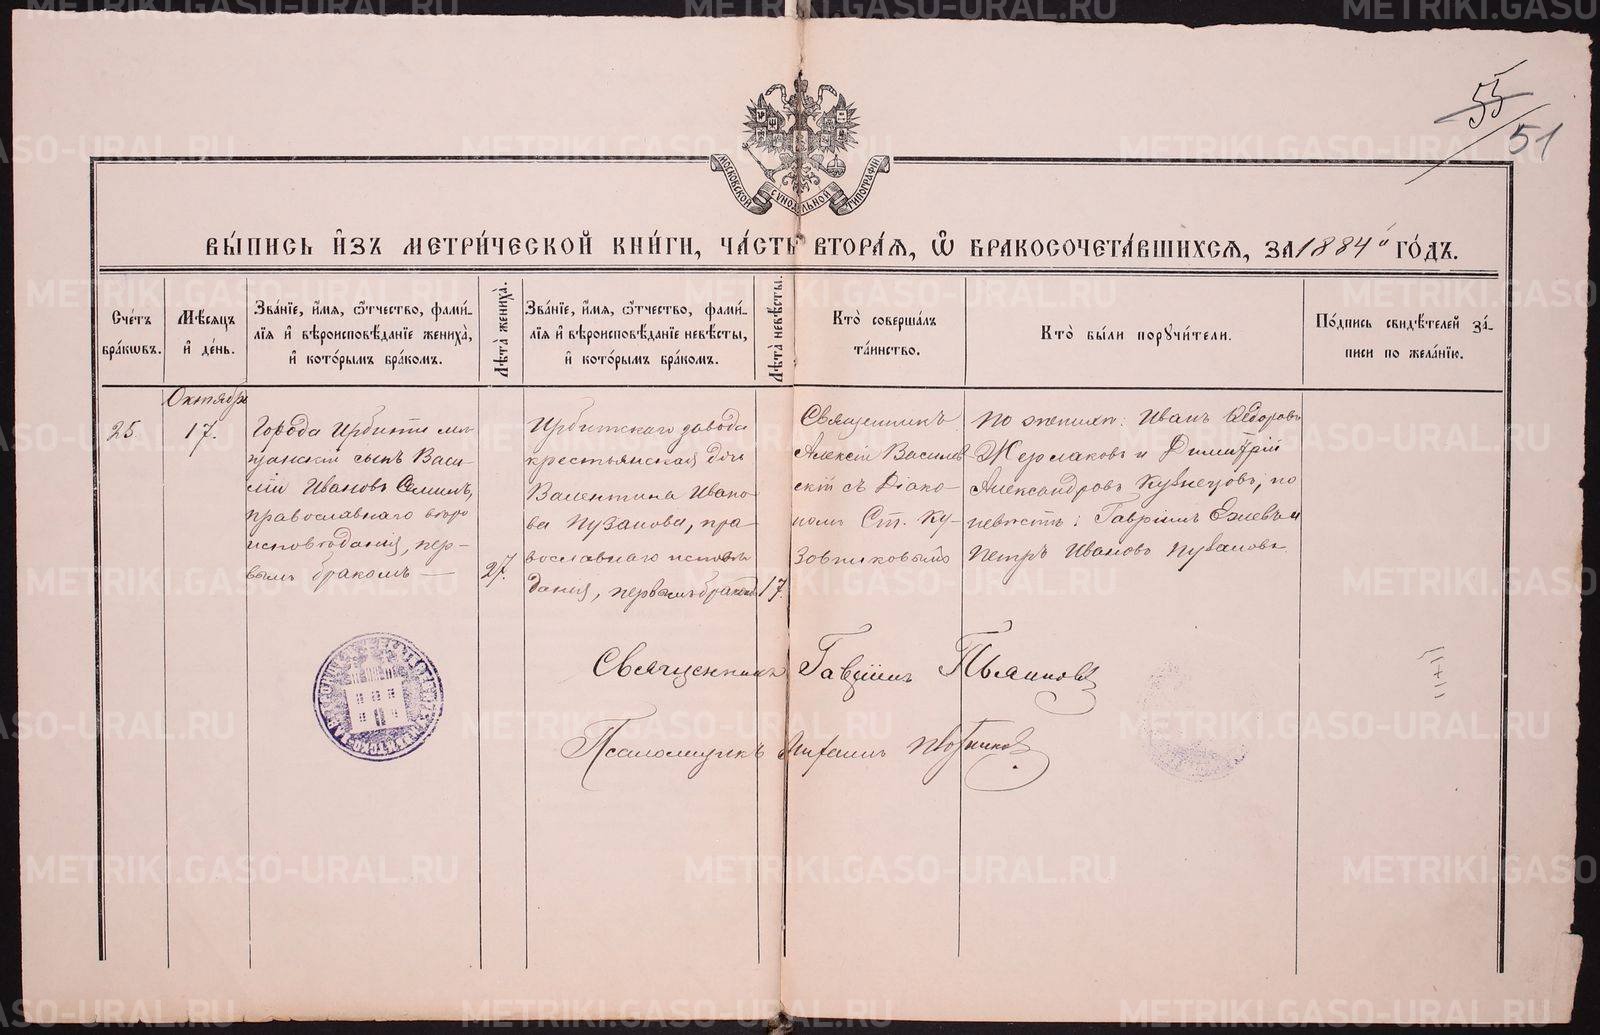 55
51
МОСКОВСКОЙ СѴНОДАЛЬНОЙ ТИПОГРАФІИ
ВЫ́ПИСЬ И҆ЗЪ МЕТРИ́ЧЕСКОЙ КНИ́ГИ, ЧА́СТЬ ВТОРА́Я, Ѽ БРАКОСОЧЕТА́ВШИХСЯ, ЗА 1884й ГО́ДЪ.
Сче́тъ бра́кѡвъ.
Мѣ́сяцъ и҆ де́нь.
Зва́нїе, и҆́мя, ѻ҆́тчество, фами́-
лїя и҆ вѣроисповѣ́данїе жениха̀,
и҆ кото́рымъ бра́комъ.
Лѣ́та жениха̀.
Зва́нїе, и҆́мя, ѻ҆́тчество, фами́-
лїя и҆ вѣроисповѣ́данїе невѣ́сты,
и҆ кото́рымъ бра́комъ.
Лѣ́та невѣ́сты.
Кто̀ соверша́лъ
та́инство.
Кто̀ бы́ли поручи́тели.
По́дпись свидѣ́телей за́-
писи по жела́нїю.
25.
Октября
17.
Города Ирбити мѣ-
щанскій сынъ Васи-
лій Ивановъ Семинъ,
православнаго вѣро
исповѣданія, пер-
вымъ бракомъ —
27.
Ирбитскаго завода
крестьянская дѣв.
Валентина Ивано-
ва Пузанова, пра-
вославнаго исповѣ
данія, первымъ бракомъ
17.
Священникъ
Алексій Василев
скій съ Діако-
номъ Ст. Ку-
зовниковымъ
По женихѣ: Иванъ Ѳедоровъ
Жерлаковъ и Димитрій
Александровъ Кузнецовъ; по
невѣстѣ: Гавріилъ и
Петръ Ивановъ Пузановъ
Священникъ Гавріилъ Пьянковъ
Псаломщикъ Михаилъ
METRIKI.GASO-URAL.RU